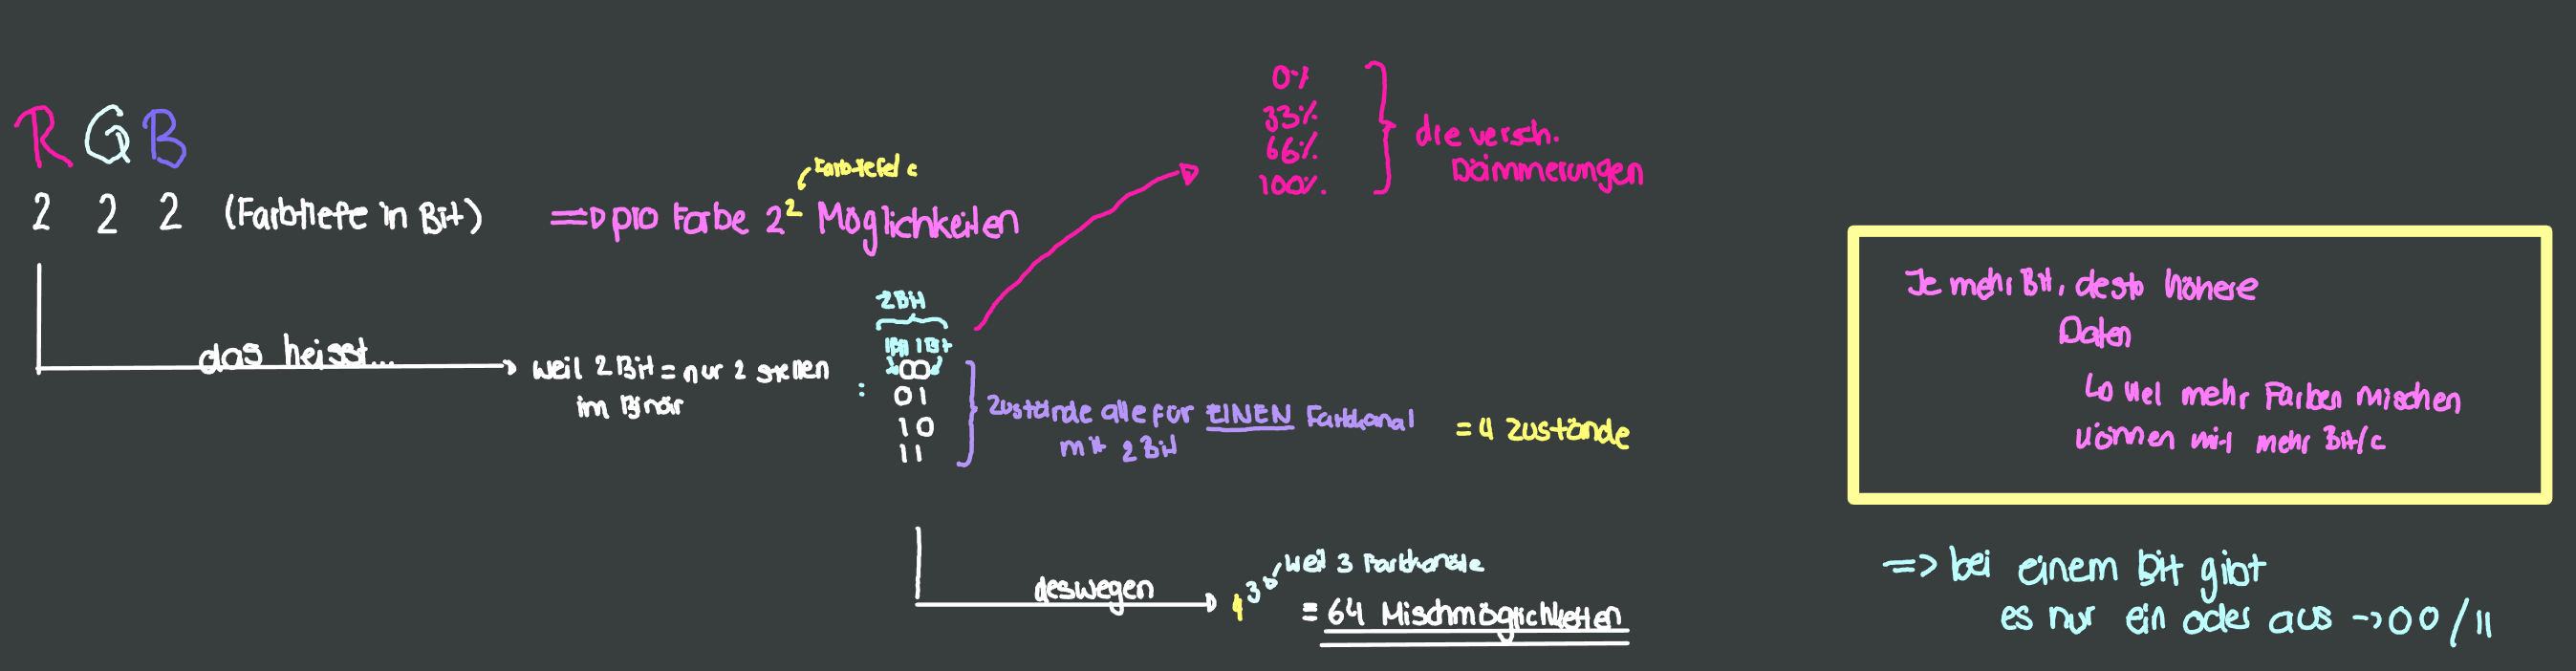 R G B
2 2 2 (Farbtiefe in Bit)
=> pro Farbe 2² Möglichkeiten
Farbtiefe/c
0%
33%
66%
100%
die versch.
Dämmerungen
das heisst...
weil 2 Bit = nur 2 stellen
im Binär
:
2 Bit
1Bit 1Bit
00
01
10
11
Zustände alle für EINEN Farbkanal
mit 2 Bit
= 4 Zustände
deswegen
4³
weil 3 Farbkanäle
= 64 Mischmöglichkeiten
Je mehr Bit, desto höhere
Daten
↳ viel mehr Farben mischen
können mit mehr Bit/c
=> bei einem Bit gibt
es nur ein oder aus → 00/11